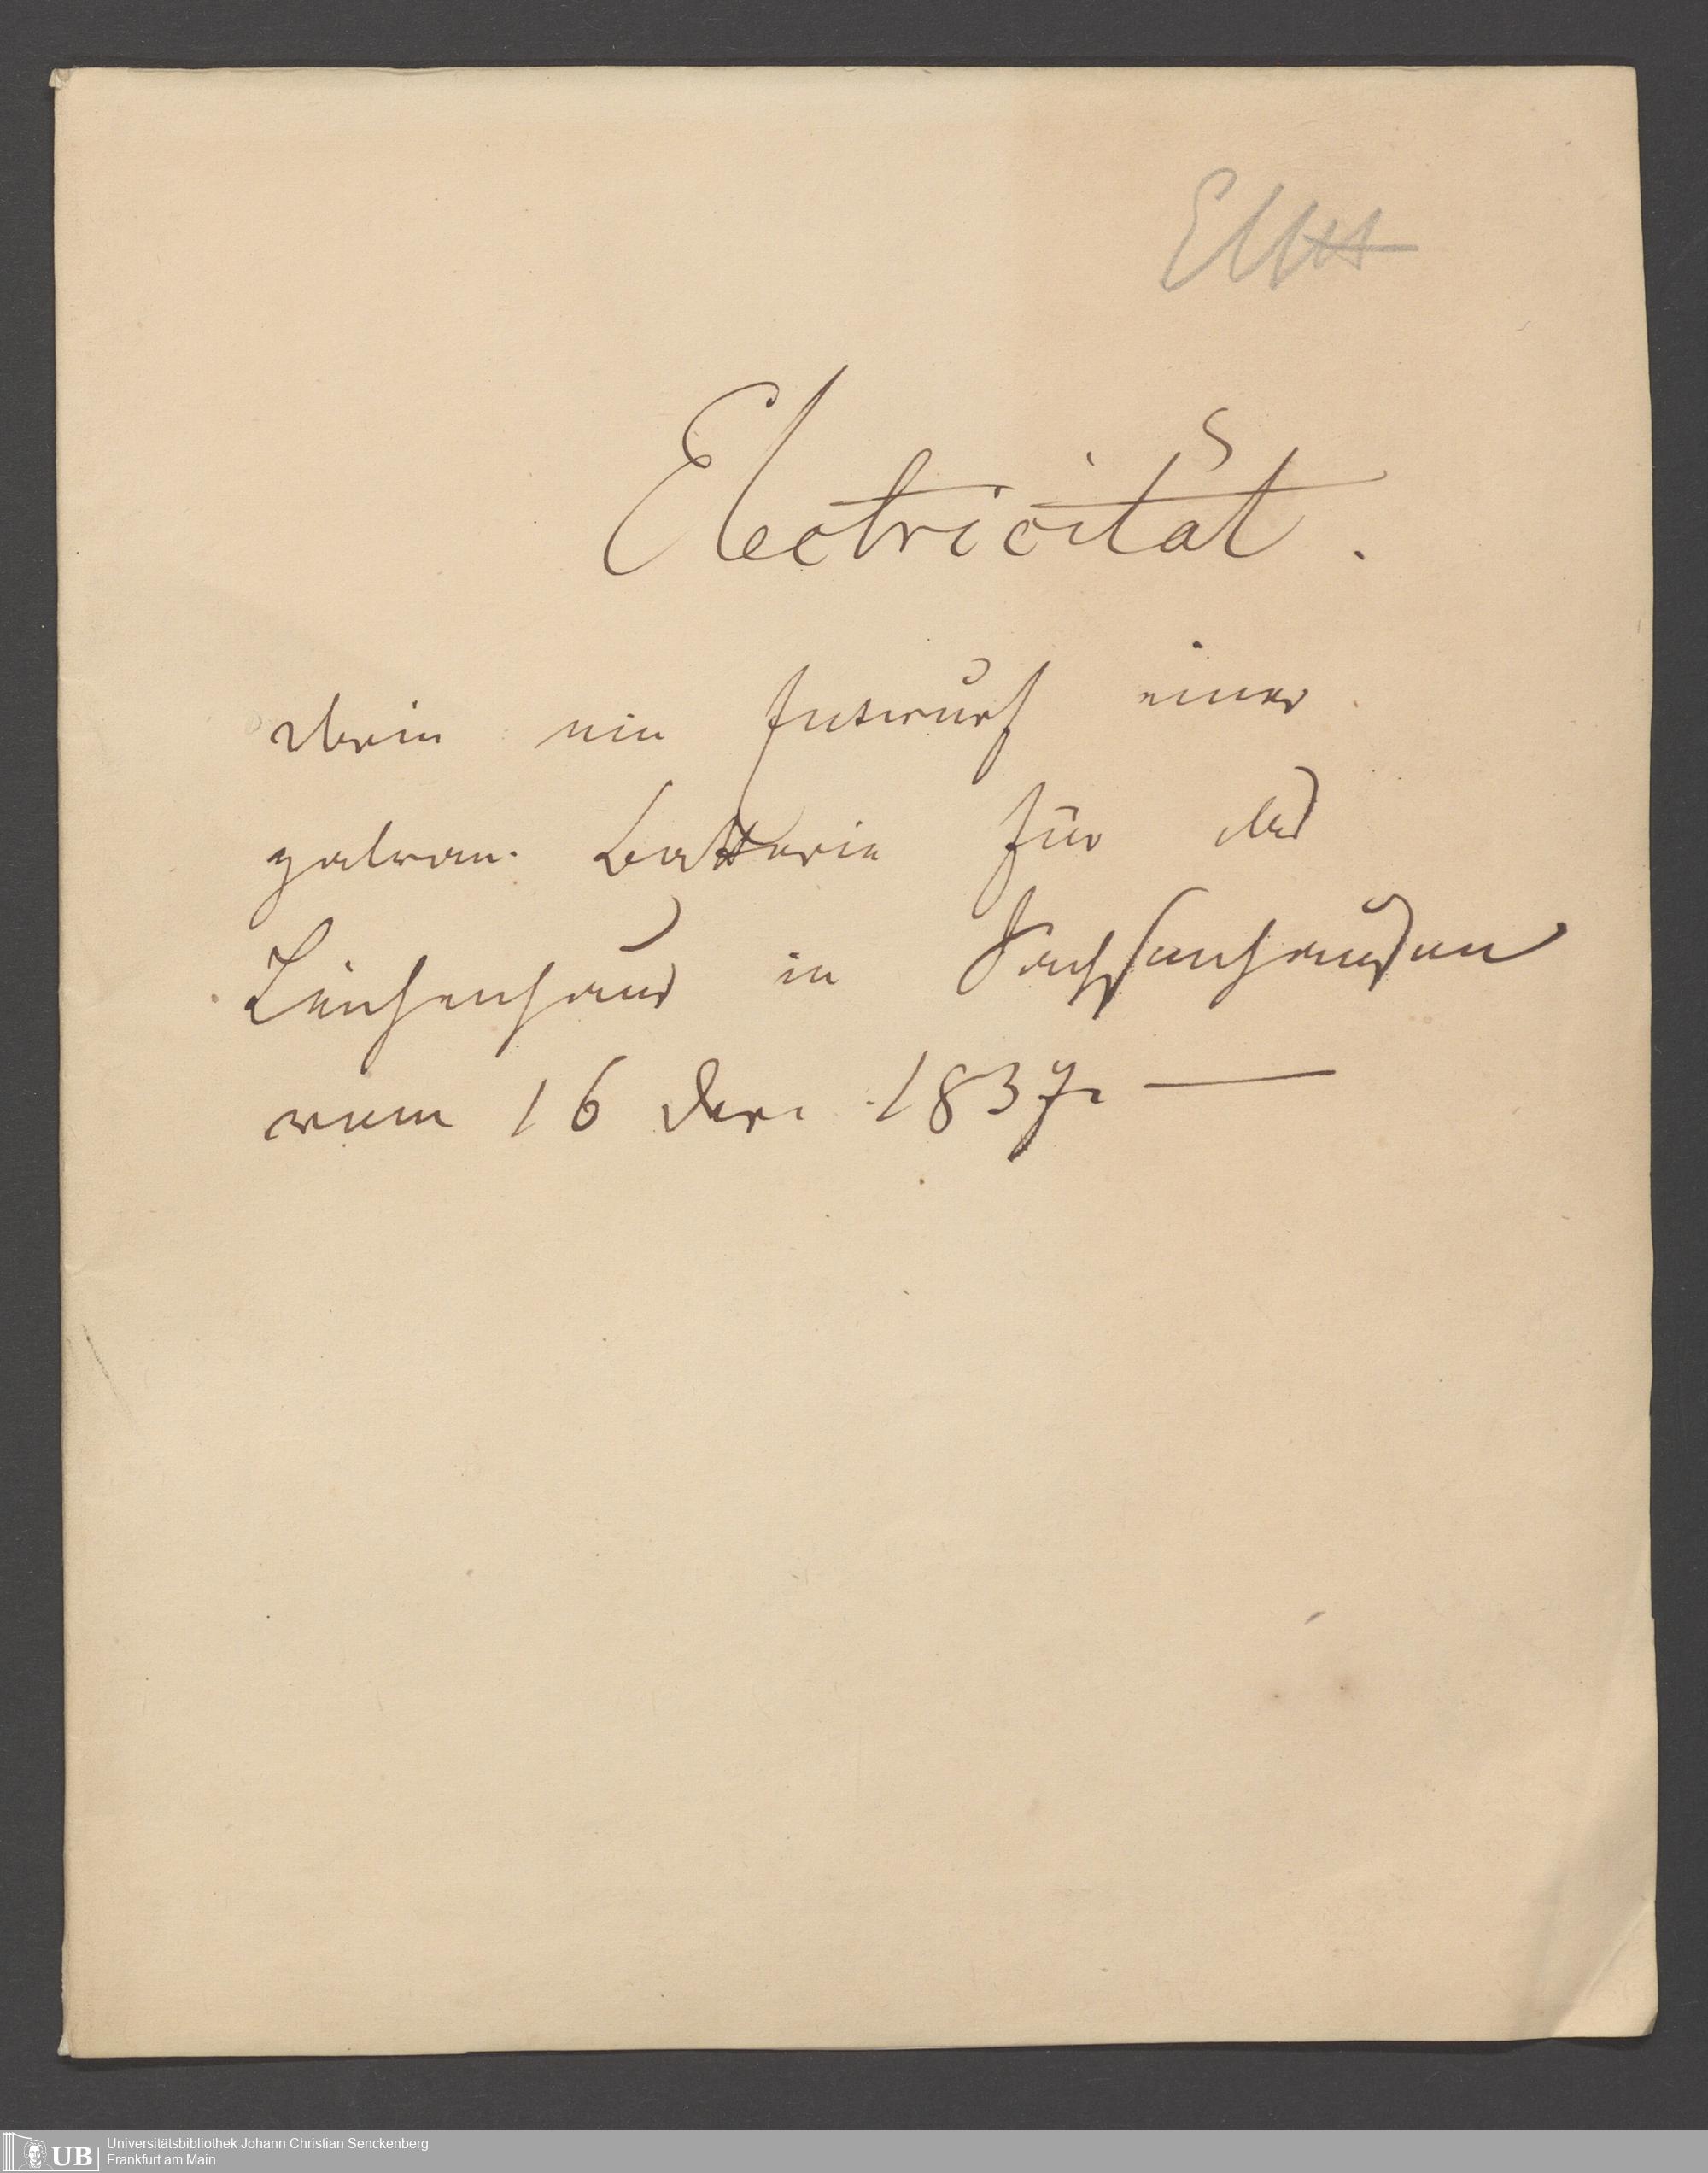 Electricität.
darin ein Entwurf einer
galvan. Batterie für das
Leichenhaus in Sachsenhausen
vom 16 Dec. 1837. —
UB
Universitätsbibliothek Johann Christian Senckenberg
Frankfurt am Main